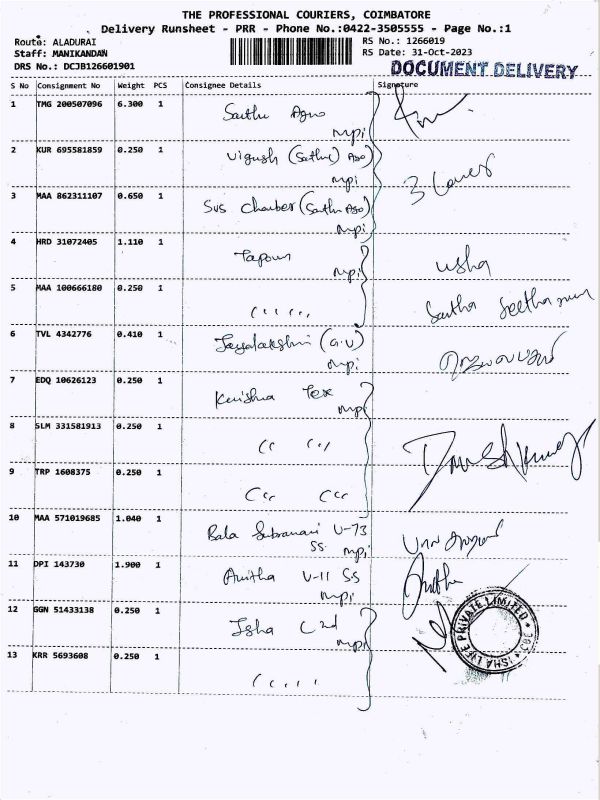 THE PROFESSIONAL COURIERS, COIMBATORE
Delivery Runsheet - PRR - Phone No.:0422-3505555 - Page No.:1
Route: ALADURAI RS No.: 1266019
Staff: MANIKANDAN RS Date: 31-Oct-2023
DRS No.: DCJB126601901 DOCUMENT DELIVERY
S No Consignment No Weight PCS Consignee Details Signature
1 TMG 200507096 6.300 1 Sathi Agro
mpi
2 KUR 695581859 0.250 1 Vignesh (Sathi) Aso
mpi 3 Cover
3 MAA 862311107 0.650 1 Sus Chamber (Sathi Aso)
mpi
4 HRD 31072405 1.110 1 Tapovn usha
mpi
5 MAA 100666180 0.250 1 Saritha Seetharam
6 TVL 4342776 0.410 1 Jayalakshmi (G.V)
mpi
7 EDQ 10626123 0.250 1 Krishna Tex
mpi
8 SLM 331581913 0.250 1
9 TRP 1608375 0.250 1
10 MAA 571019685 1.040 1 Bala Subramani V-73
SS mpi
11 DPI 143730 1.900 1 Anitha V-11 SS Anitha
mpi
12 GGN 51433138 0.250 1 Isha C 2nd
mpi
13 KRR 5693608 0.250 1
ISHA LIFE PRIVATE LIMITED